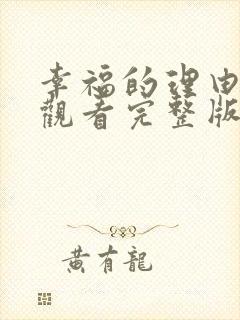 幸福的理由
觀看完整版
黃有龍